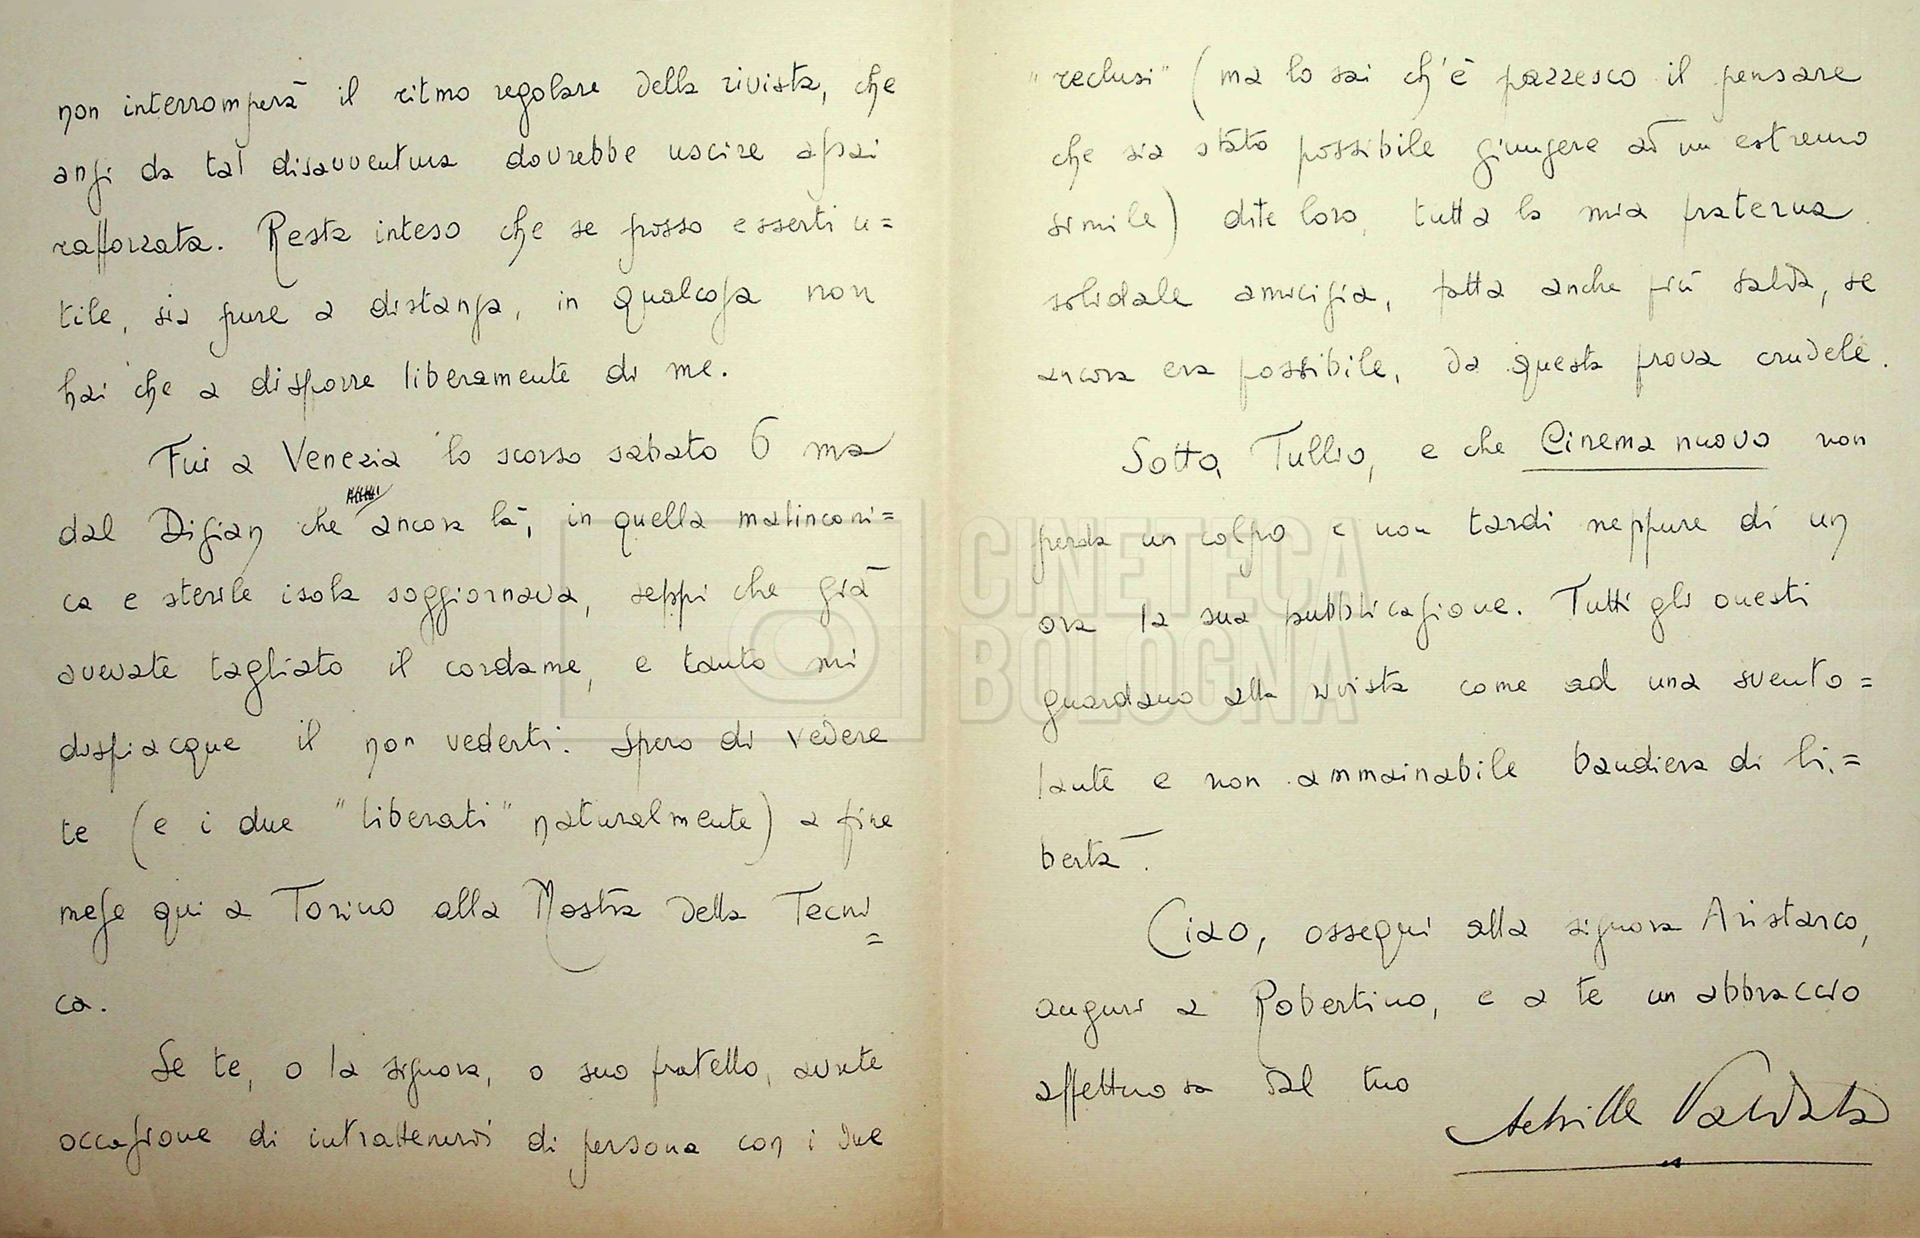 non interromperà il ritmo regolare della rivista, che
anzi da tal disavventura dovrebbe uscire assai
rafforzata. Resta inteso che se posso esserti u=
tile, sia pure a distanza, in qualcosa non
hai che a disporre liberamente di me.
Fui a Venezia lo scorso sabato 6 ma
dal Difian che ancora là, in quella malinconi=
ca e sterile isola soggiornava, seppi che già
avevate tagliato il cordame, e tanto mi
dispiacque il non vederti. Spero di vedere
te (e i due "liberati" naturalmente) a fine
mese qui a Torino alla Mostra della Tecni=
ca.
Se te, o la signora, o suo fratello, avrete
occasione di intrattenervi di persona con i due
"reclusi" (ma lo sai ch'è pazzesco il pensare
che sia stato possibile giungere ad un estremo
simile) dite loro, tutta la mia fraterna
solidale amicizia, fatta anche più salda, se
ancora era possibile, da questa prova crudele.
Sotto, Tullio, e che Cinema nuovo non
perda un colpo e non tardi neppure di un
ora la sua pubblicazione. Tutti gli onesti
guardano alla rivista come ad una svento=
lante e non ammainabile bandiera di li=
bertà.
Ciao, ossequi alla signora Aristarco,
auguri a Robertino, e a te un abbraccio
affettuoso dal tuo
Achille Valdata
CINETECA
BOLOGNA